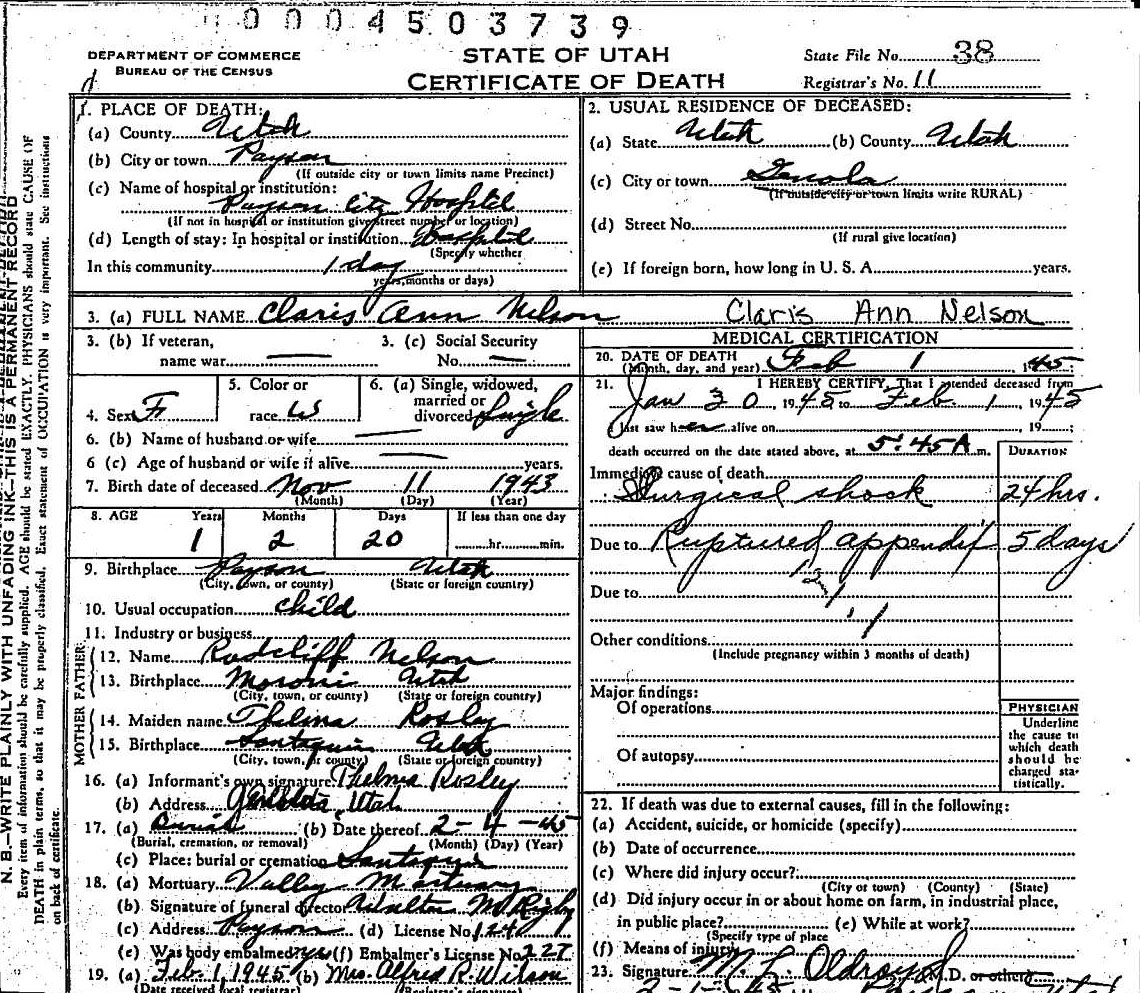 0004503739
DEPARTMENT OF COMMERCE
BUREAU OF THE CENSUS
STATE OF UTAH
CERTIFICATE OF DEATH
State File No. 38
Registrar's No. 11
N. B.—WRITE PLAINLY WITH UNFADING INK—THIS IS A PERMANENT RECORD
Every item of information should be carefully supplied. AGE should be stated EXACTLY. PHYSICIANS should state CAUSE OF
DEATH in plain terms, so that it may be properly classified. Exact statement of OCCUPATION is very important. See instructions
on back of certificate.
1. PLACE OF DEATH:
(a) County Utah
(b) City or town Payson
(If outside city or town limits name Precinct)
(c) Name of hospital or institution:
Payson City Hosptil
(If not in hospital or institution give street number or location)
(d) Length of stay: In hospital or institution Hosptil
(Specify whether
In this community 1 day
years, months or days)
2. USUAL RESIDENCE OF DECEASED:
(a) State Utah (b) County Utah
(c) City or town Genola
(If outside city or town limits write RURAL)
(d) Street No.
(If rural give location)
(e) If foreign born, how long in U. S. A. years.
3. (a) FULL NAME Claris Ann Nelson Claris Ann Nelson
3. (b) If veteran, name war — 3. (c) Social Security No. —
4. Sex F 5. Color or race W 6. (a) Single, widowed, married or divorced Single
6. (b) Name of husband or wife —
6 (c) Age of husband or wife if alive — years.
7. Birth date of deceased Nov 11 1943
(Month) (Day) (Year)
8. AGE Years Months Days If less than one day
1 2 20 hr. min.
9. Birthplace Payson Utah
(City, town, or county) (State or foreign country)
10. Usual occupation child
11. Industry or business
FATHER
12. Name Radcliff Nelson
13. Birthplace Moroni Utah
(City, town, or county) (State or foreign country)
MOTHER
14. Maiden name Thelma Rosley
15. Birthplace Santaquin Utah
(City, town, or county) (State or foreign country)
16. (a) Informant's own signature Thelma Rosley
(b) Address Utah
17. (a) Burial (b) Date thereof 2-4-45
(Burial, cremation, or removal) (Month) (Day) (Year)
(c) Place: burial or cremation Santaquin
18. (a) Mortuary Valley Mortuary
(b) Signature of funeral director Walter M. Rigby
(c) Address Payson (d) License No. 124
(e) Was body embalmed yes (f) Embalmer's License No. 227
19. (a) Feb. 1, 1945 (b) Mrs. Alfred R. Wilson
(Date received local registrar) (Registrar's signature)
MEDICAL CERTIFICATION
20. DATE OF DEATH Feb 1 1945
(Month, day, and year)
21. I HEREBY CERTIFY, That I attended deceased from
Jan 30, 1945 to Feb. 1, 1945
I last saw her alive on 19 ;
death occurred on the date stated above, at 5:45 A m.
DURATION
Immediate cause of death
Surgical shock 24 hrs.
Due to Ruptured appendix 5 days
Due to
Other conditions
(Include pregnancy within 3 months of death)
Major findings:
Of operations
Of autopsy
PHYSICIAN
Underline
the cause to
which death
should be
charged sta-
tistically.
22. If death was due to external causes, fill in the following:
(a) Accident, suicide, or homicide (specify)
(b) Date of occurrence
(c) Where did injury occur?
(City or town) (County) (State)
(d) Did injury occur in or about home on farm, in industrial place,
in public place? (e) While at work?
(Specify type of place
(f) Means of injury
23. Signature M. L. Oldroyd (M.D. or other)
2-1-45